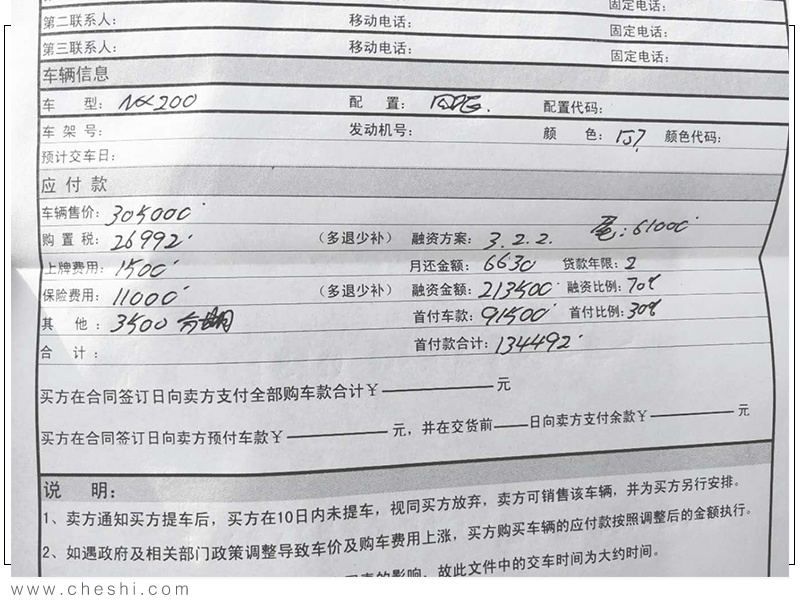 固定电话:
第二联系人: 移动电话: 固定电话:
第三联系人: 移动电话: 固定电话:
车辆信息
车 型: NX200 配 置: 配置代码:
车 架 号: 发动机号: 颜 色: 颜色代码:
预计交车日:
应 付 款
车辆售价: 305000
购 置 税: 26992 (多退少补) 融资方案: 3.2.2. 尾:61000
上牌费用: 1500 月还金额: 6630 贷款年限: 2
保险费用: 11000 (多退少补) 融资金额: 213500 融资比例: 70%
其 他: 3500 分期 首付车款: 91500 首付比例: 30%
合 计: 首付款合计: 134492
买方在合同签订日向卖方支付全部购车款合计￥————元
买方在合同签订日向卖方预付车款￥————元,并在交货前——日向卖方支付余款￥————元
说 明:
1、卖方通知买方提车后,买方在10日内未提车,视同买方放弃,卖方可销售该车辆,并为买方另行安排。
2、如遇政府及相关部门政策调整导致车价及购车费用上涨,买方购买车辆的应付款按照调整后的金额执行。
的影响,故此文件中的交车时间为大约时间。
www.cheshi.com